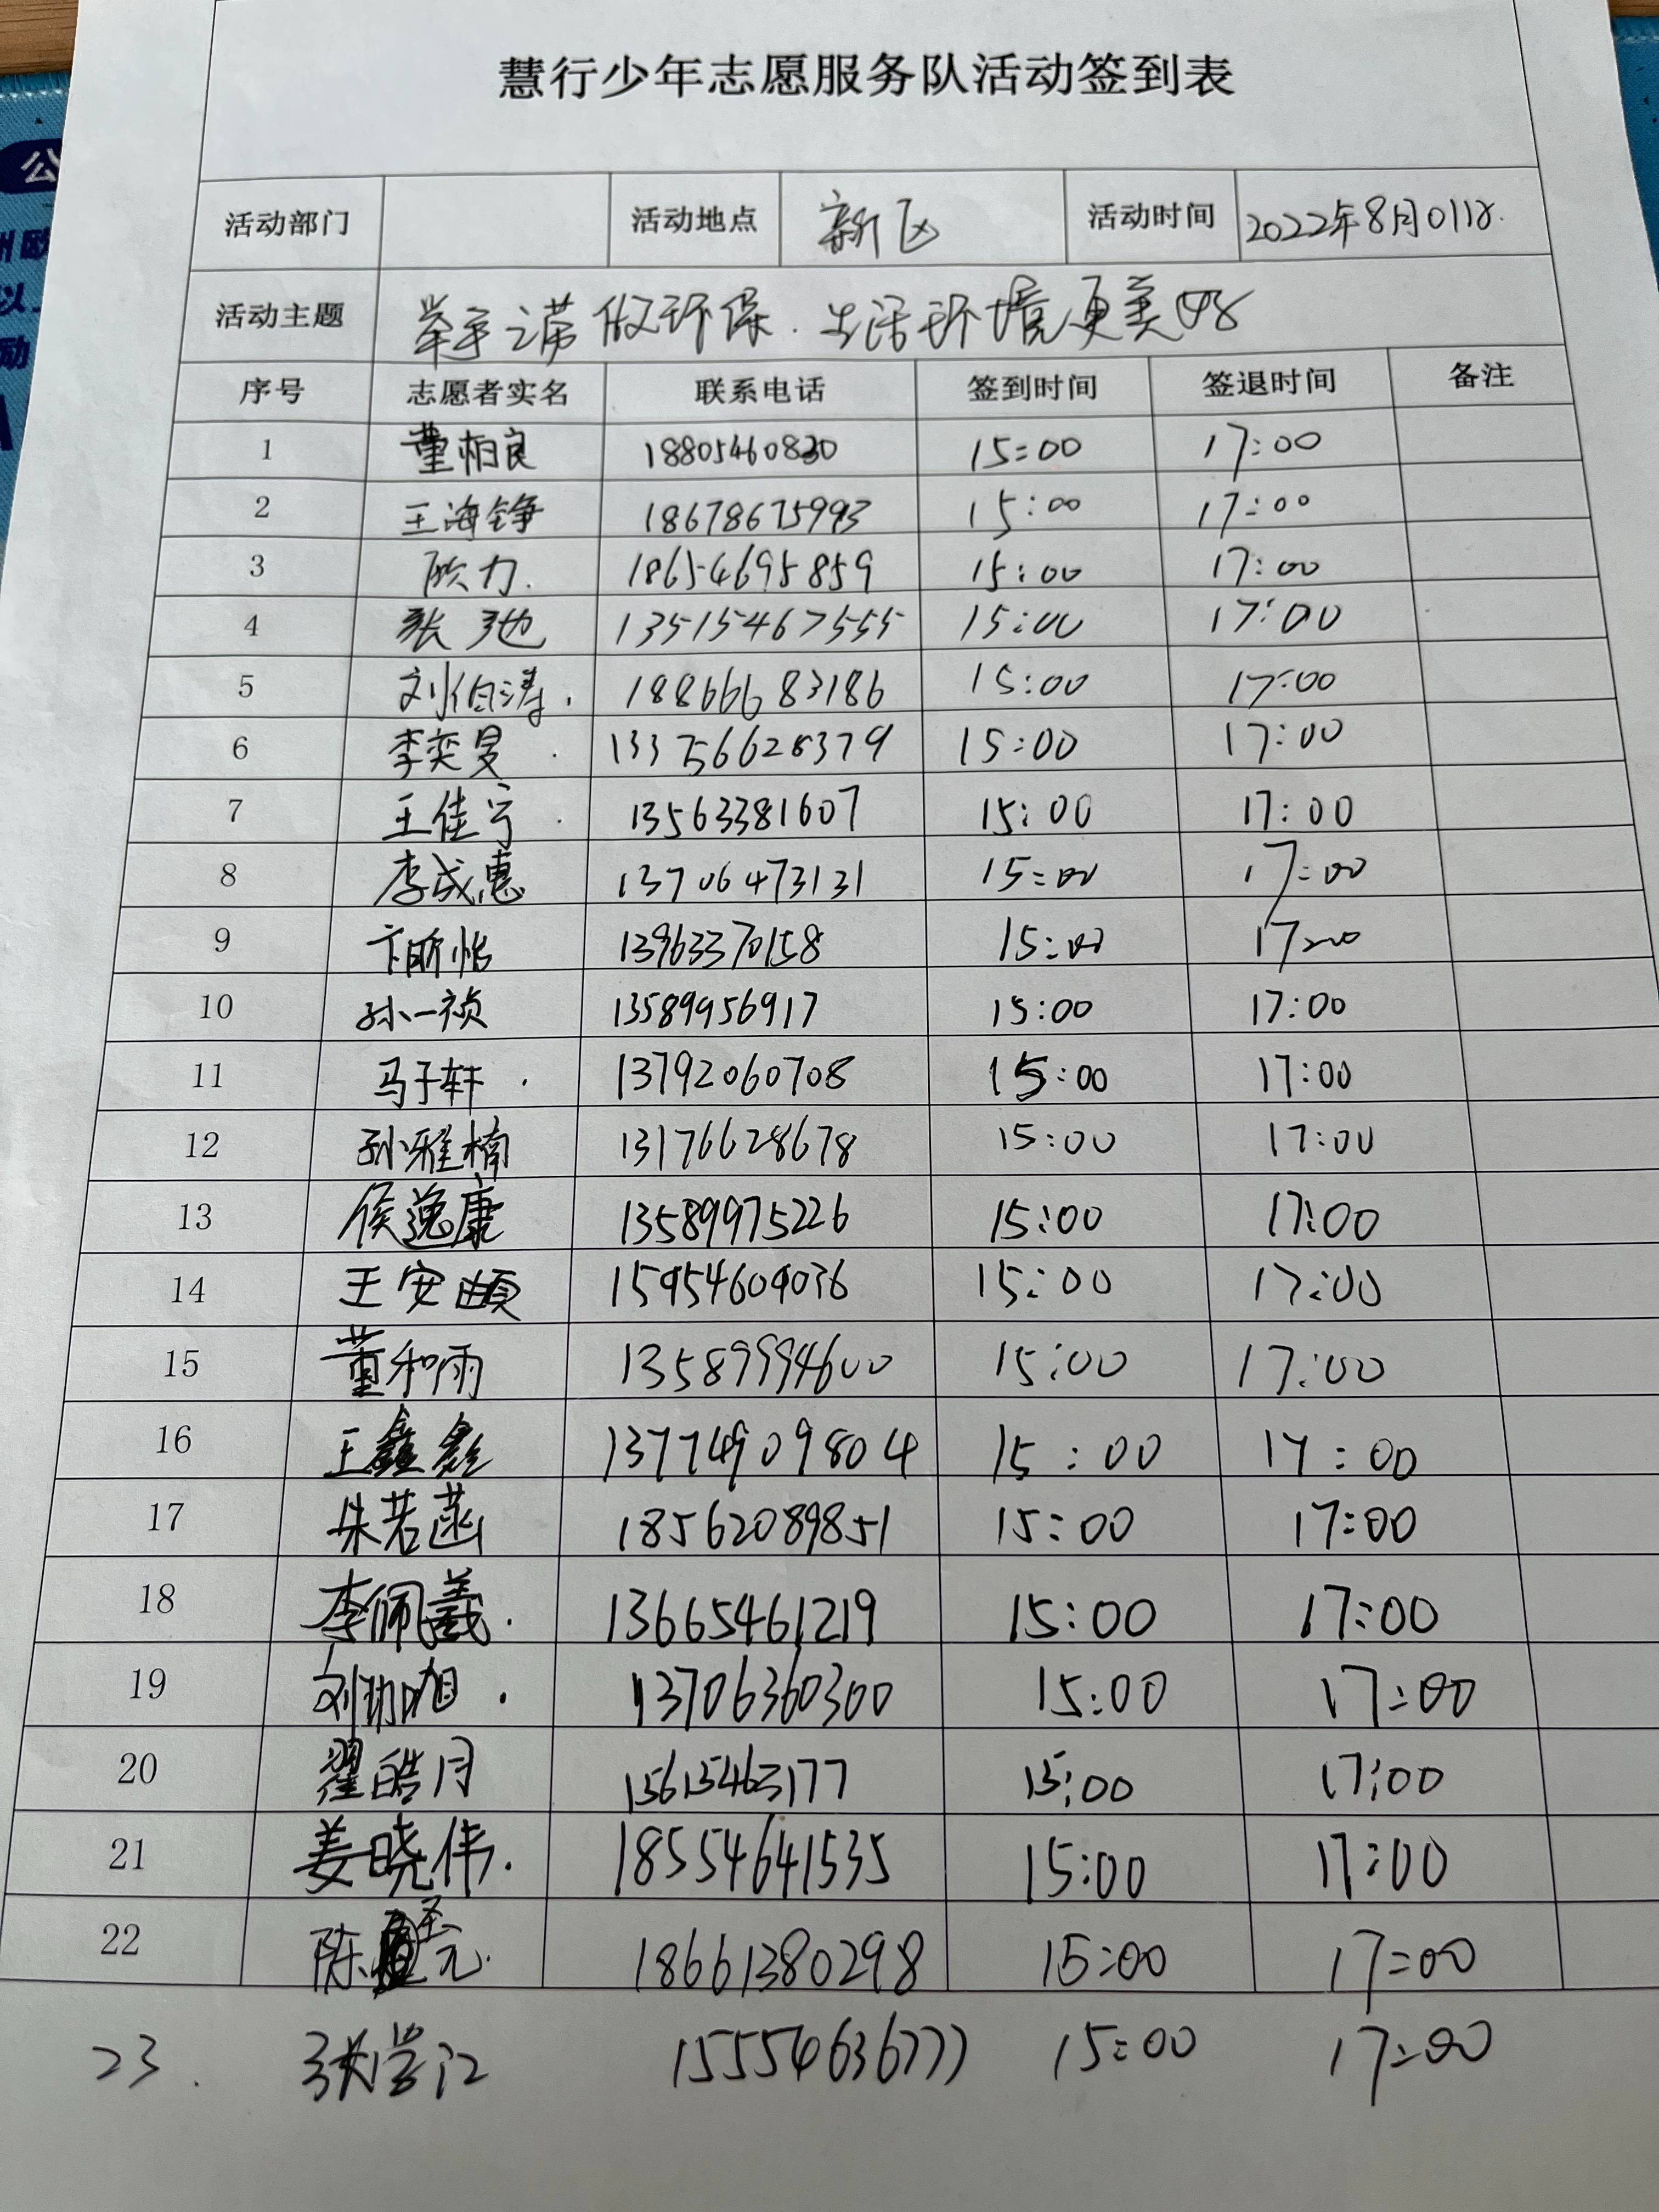 慧行少年志愿服务队活动签到表
活动部门 活动地点 新区 活动时间 2022年8月01日.
活动主题 举手之劳做环保.生活环境更美好
序号 志愿者实名 联系电话 签到时间 签退时间 备注
1 董柏良 18805460830 15:00 17:00
2 王海铮 18678675993 15:00 17:00
3 欣力. 18654695859 15:00 17:00
4 张弛 13515467555 15:00 17:00
5 刘伯涛. 18866683186 15:00 17:00
6 李奕旻. 133756628379 15:00 17:00
7 王佳宁. 13563381607 15:00 17:00
8 李成惠 13706473131 15:00 17:00
9 卞昕怡 13963370158 15:00 17:00
10 孙一祯 13589956917 15:00 17:00
11 马子轩. 13792060708 15:00 17:00
12 孙雅楠 13176628678 15:00 17:00
13 侯逸康 13589975226 15:00 17:00
14 王安頔 15954609036 15:00 17:00
15 董和雨 13589994600 15:00 17:00
16 王鑫 13774909804 15:00 17:00
17 朱若菡 18562089851 15:00 17:00
18 李佩羲. 13665461219 15:00 17:00
19 刘珈旭. 13706360300 15:00 17:00
20 翟皓月 15615463177 15:00 17:00
21 姜晓伟. 18554641535 15:00 17:00
22 陈圣元. 18661380298 15:00 17:00
23. 张学江 15554636777 15:00 17:00
公
以
励